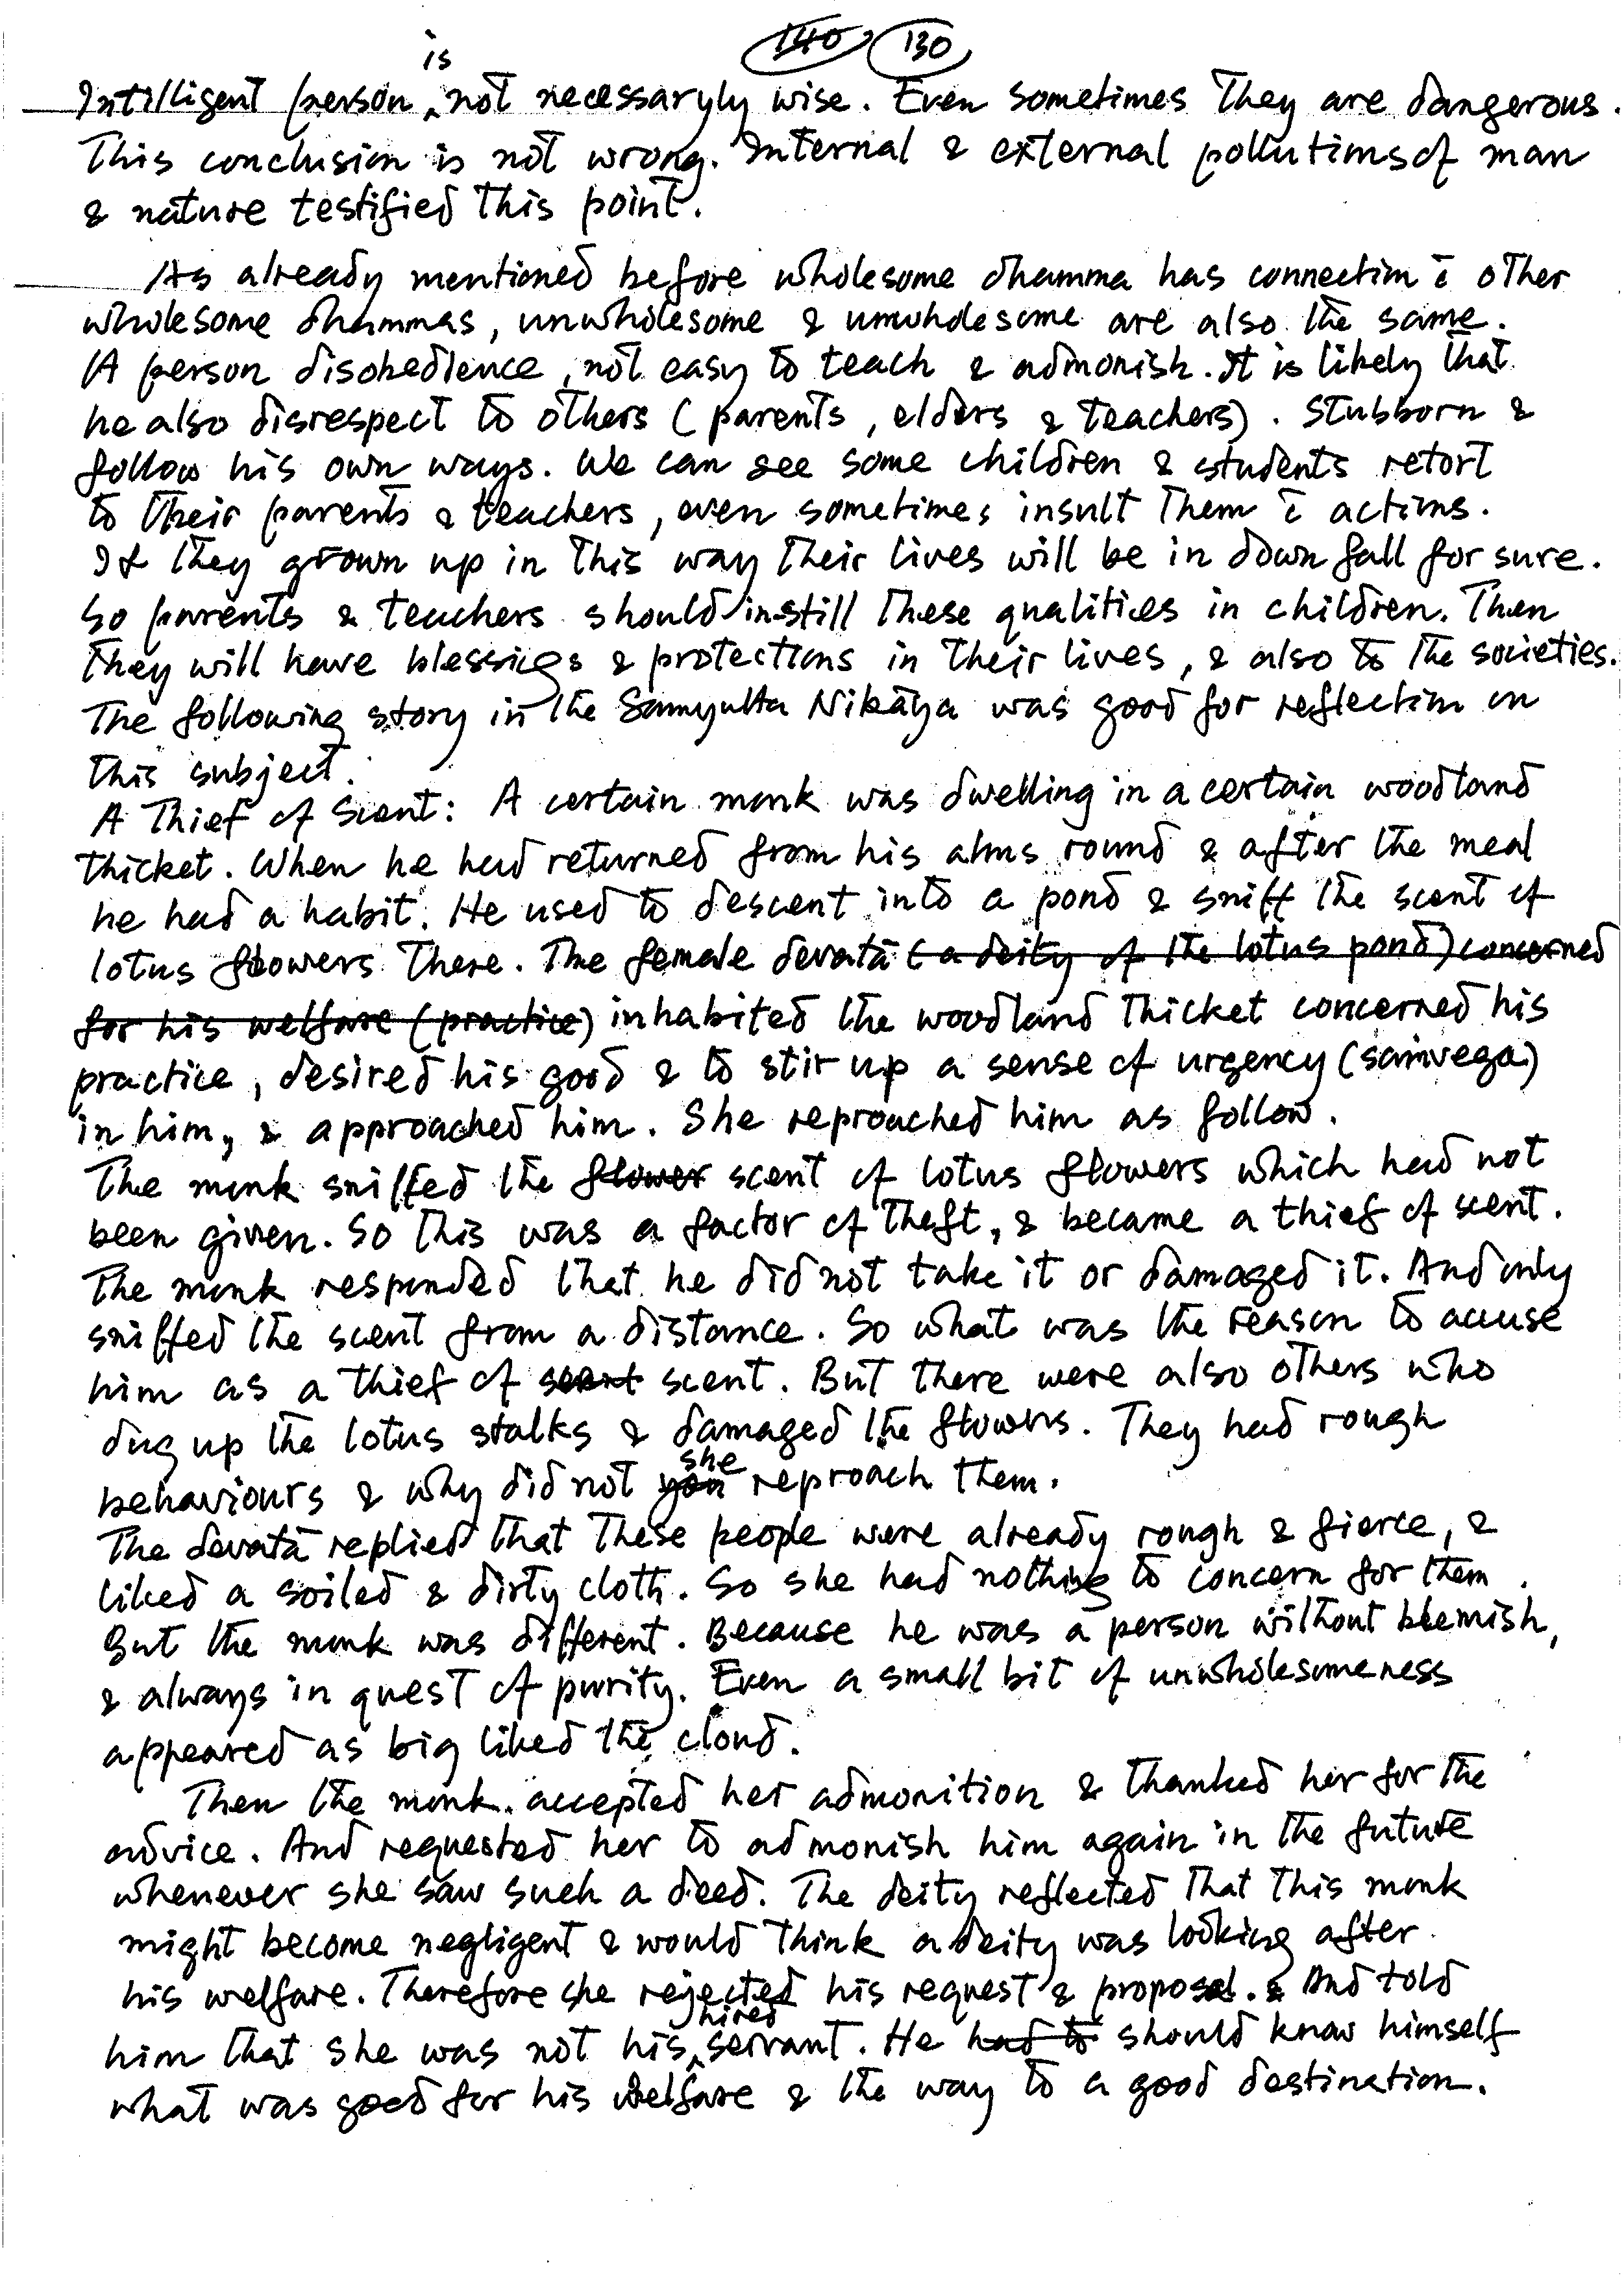 140 130
Intilligent person is not necessaryly wise. Even sometimes they are dangerous.
This conclusion is not wrong. Internal & external pollutions of man
& nature testified this point.
As already mentioned before wholesome dhamma has connection c̄ other
wholesome dhammas, unwholesome & unwholesome are also the same.
A person disobedience, not easy to teach & admonish. It is likely that
he also disrespect to others (parents, elders & teachers). Stubborn &
follow his own ways. We can see some children & students retort
to their parents & teachers, even sometimes insult them c̄ actions.
If they grown up in this way their lives will be in down fall for sure.
So parents & teachers should instill these qualities in children. Then
they will have blessings & protections in their lives, & also to the societies.
The following story in the Samyutta Nikāya was good for reflection on
this subject.
A Thief of Scent: A certain monk was dwelling in a certain woodland
thicket. When he had returned from his alms round & after the meal
he had a habit. He used to descent into a pond & sniff the scent of
lotus flowers there. The female devatā (a deity of the lotus pond) concerned
for his welfare (practice) inhabited the woodland thicket concerned his
practice, desired his good & to stir up a sense of urgency (saṁvega)
in him, & approached him. She reproached him as follow.
The monk sniffed the flower scent of lotus flowers which had not
been given. So this was a factor of theft, & became a thief of scent.
The monk responded that he did not take it or damaged it. And only
sniffed the scent from a distance. So what was the reason to accuse
him as a thief of scent scent. But there were also others who
dug up the lotus stalks & damaged the flowers. They had rough
behaviours & why did not you she reproach them.
The devatā replied that these people were already rough & fierce, &
liked a soiled & dirty cloth. So she had nothing to concern for them.
But the monk was different. Because he was a person without blemish,
& always in quest of purity. Even a small bit of unwholesomeness
appeared as big liked the cloud.
Then the monk accepted her admonition & thanked her for the
advice. And requested her to admonish him again in the future
whenever she saw such a deed. The deity reflected that this monk
might become negligent & would think a deity was looking after
his welfare. Therefore she rejected his request & proposal. & And told
him that she was not his hired servant. He had to should know himself
what was good for his welfare & the way to a good destination.